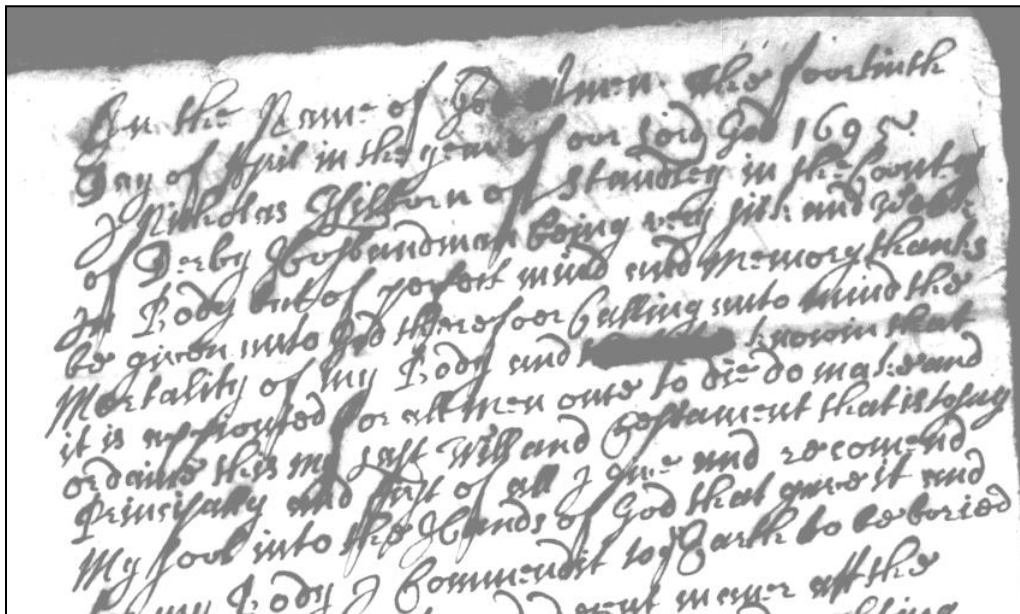 In the Name of God Amen the foortinth
Day of April in the year of oor Lord God 1695
I Nickolas Hilborn of Standley in the County
of Derby Hosbandman being very sick and Weak
In Body but of perfect mind and Memory thanks
be given unto God therefoor Calling unto mind the
Mortality of my Body and knowin that
it is appointed for all men once to die do make and
ordaine this my Last Will and Testament that is to say
Principally and first of all I give and recomend
My Sool into the Hands of God that gave it and
my Body I Commend it to ye Earth to be boried
maner att the